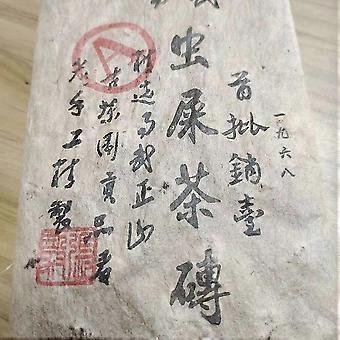 一九六八
首批銷臺
虫屎茶磚
精选易武正山
古茶園貢品君
老手工精製